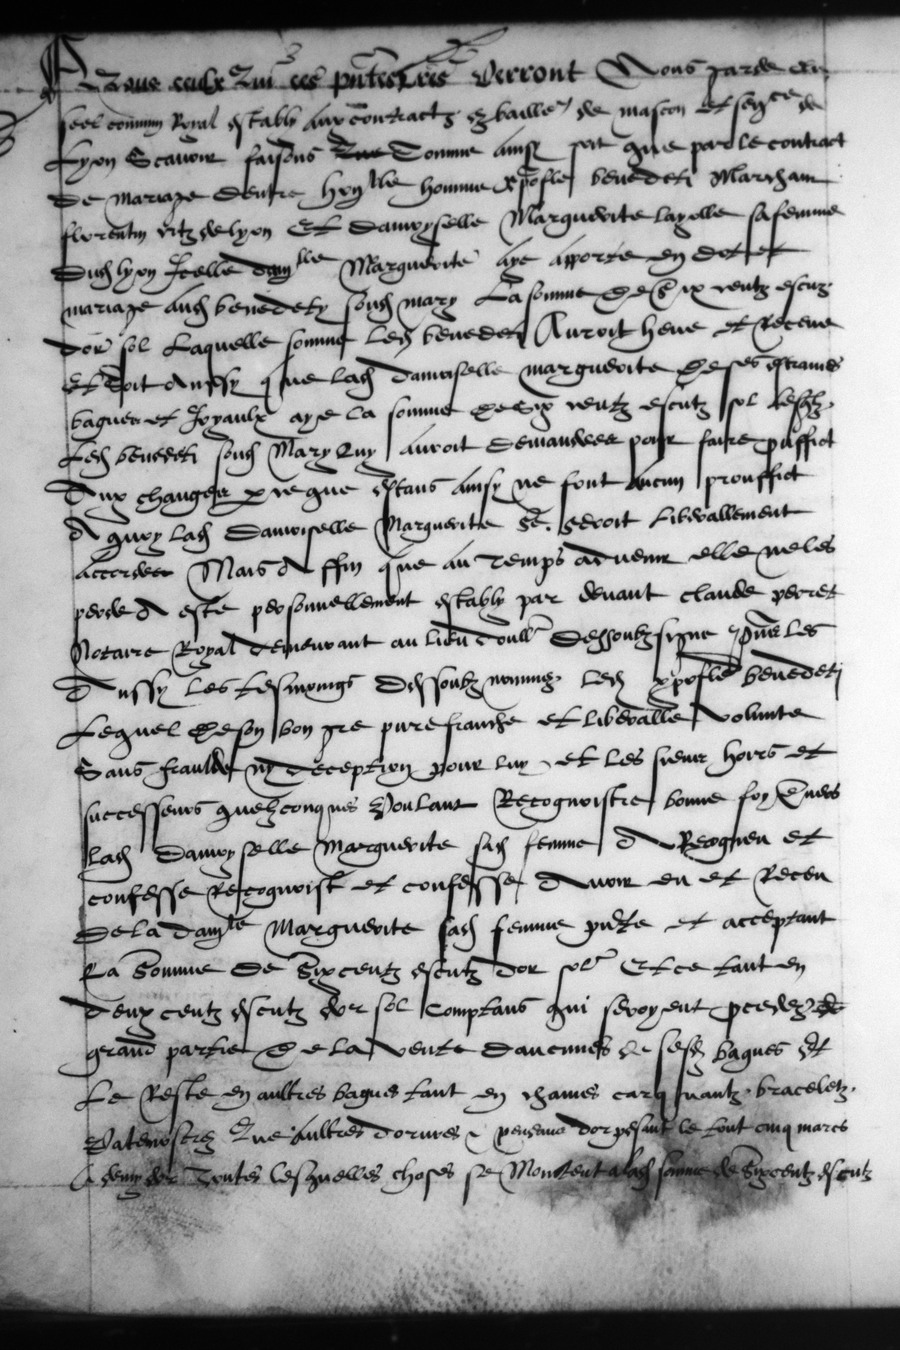 A Tous ceulx Qui ces pntes lres Verront Nous garde du
seel commun Royal estably aux contractz es bailliaiges de mascon et senes de
Lyon Scavoir faisons Comme ainsy soit que par le contract
De mariage d'entre honlle homme xpofle benedeti Marcham
florentin de lyon Et damoyselle Marguerite layolle sa femme
Dud lyon Icelle damlle Marguerite aye apporte en dot et
mariage aud benedety soud mary La somme De Six centz escuz
dor sol Laquelle somme led benedeti Auroit heue et Receue
Et Soit Aussy que lad damoiselle marguerite De ses
bagues et Joyaulx aye la somme De Six centz escutz sol lesqlz
Led benedeti soud Mary Luy auroit demandees pour faire proffict
Aux changes par ce que estans ainsy ne font aucun prouffict
A quoy lad Damoiselle Marguerite se seroit liberallement
accordee Mais A ffin que au Temps advenir elle ne les
perde A este personnellement estably par devant claude perret
Notaire Royal demeurant au lieu doull Dessoubzsigne pnt les
Aussy Les tesmoings Dessoubz nommez Led xpofle benedeti
Lequel De son bon gre pure franche et liberalle volunte
Sans fraulde ny deception pour luy et les sieurs hoirs et
successeurs quelzconques Voulant Recognoistre bonne foy Envers
lad Damoyselle Marguerite sad femme A Recogneu et
confesse Recognoist et confesse Avoir eu et Receu
De la damlle Marguerite sad femme pnte et acceptant
La Somme De Sixcentz escutz dor sol Et ce tant en
deux centz escutz dor sol Comptans qui seroyent procedez de
grand partie De la vente daucunes de sesd bagues Et
Le Reste en aultres bagues tant en chaines carquantz braceletz
Patenostres Que aultres dorures pesant le tout cinq marcs
A demy dor Toutes lesquelles choses se Montent a lad somme de Sixcentz escutz